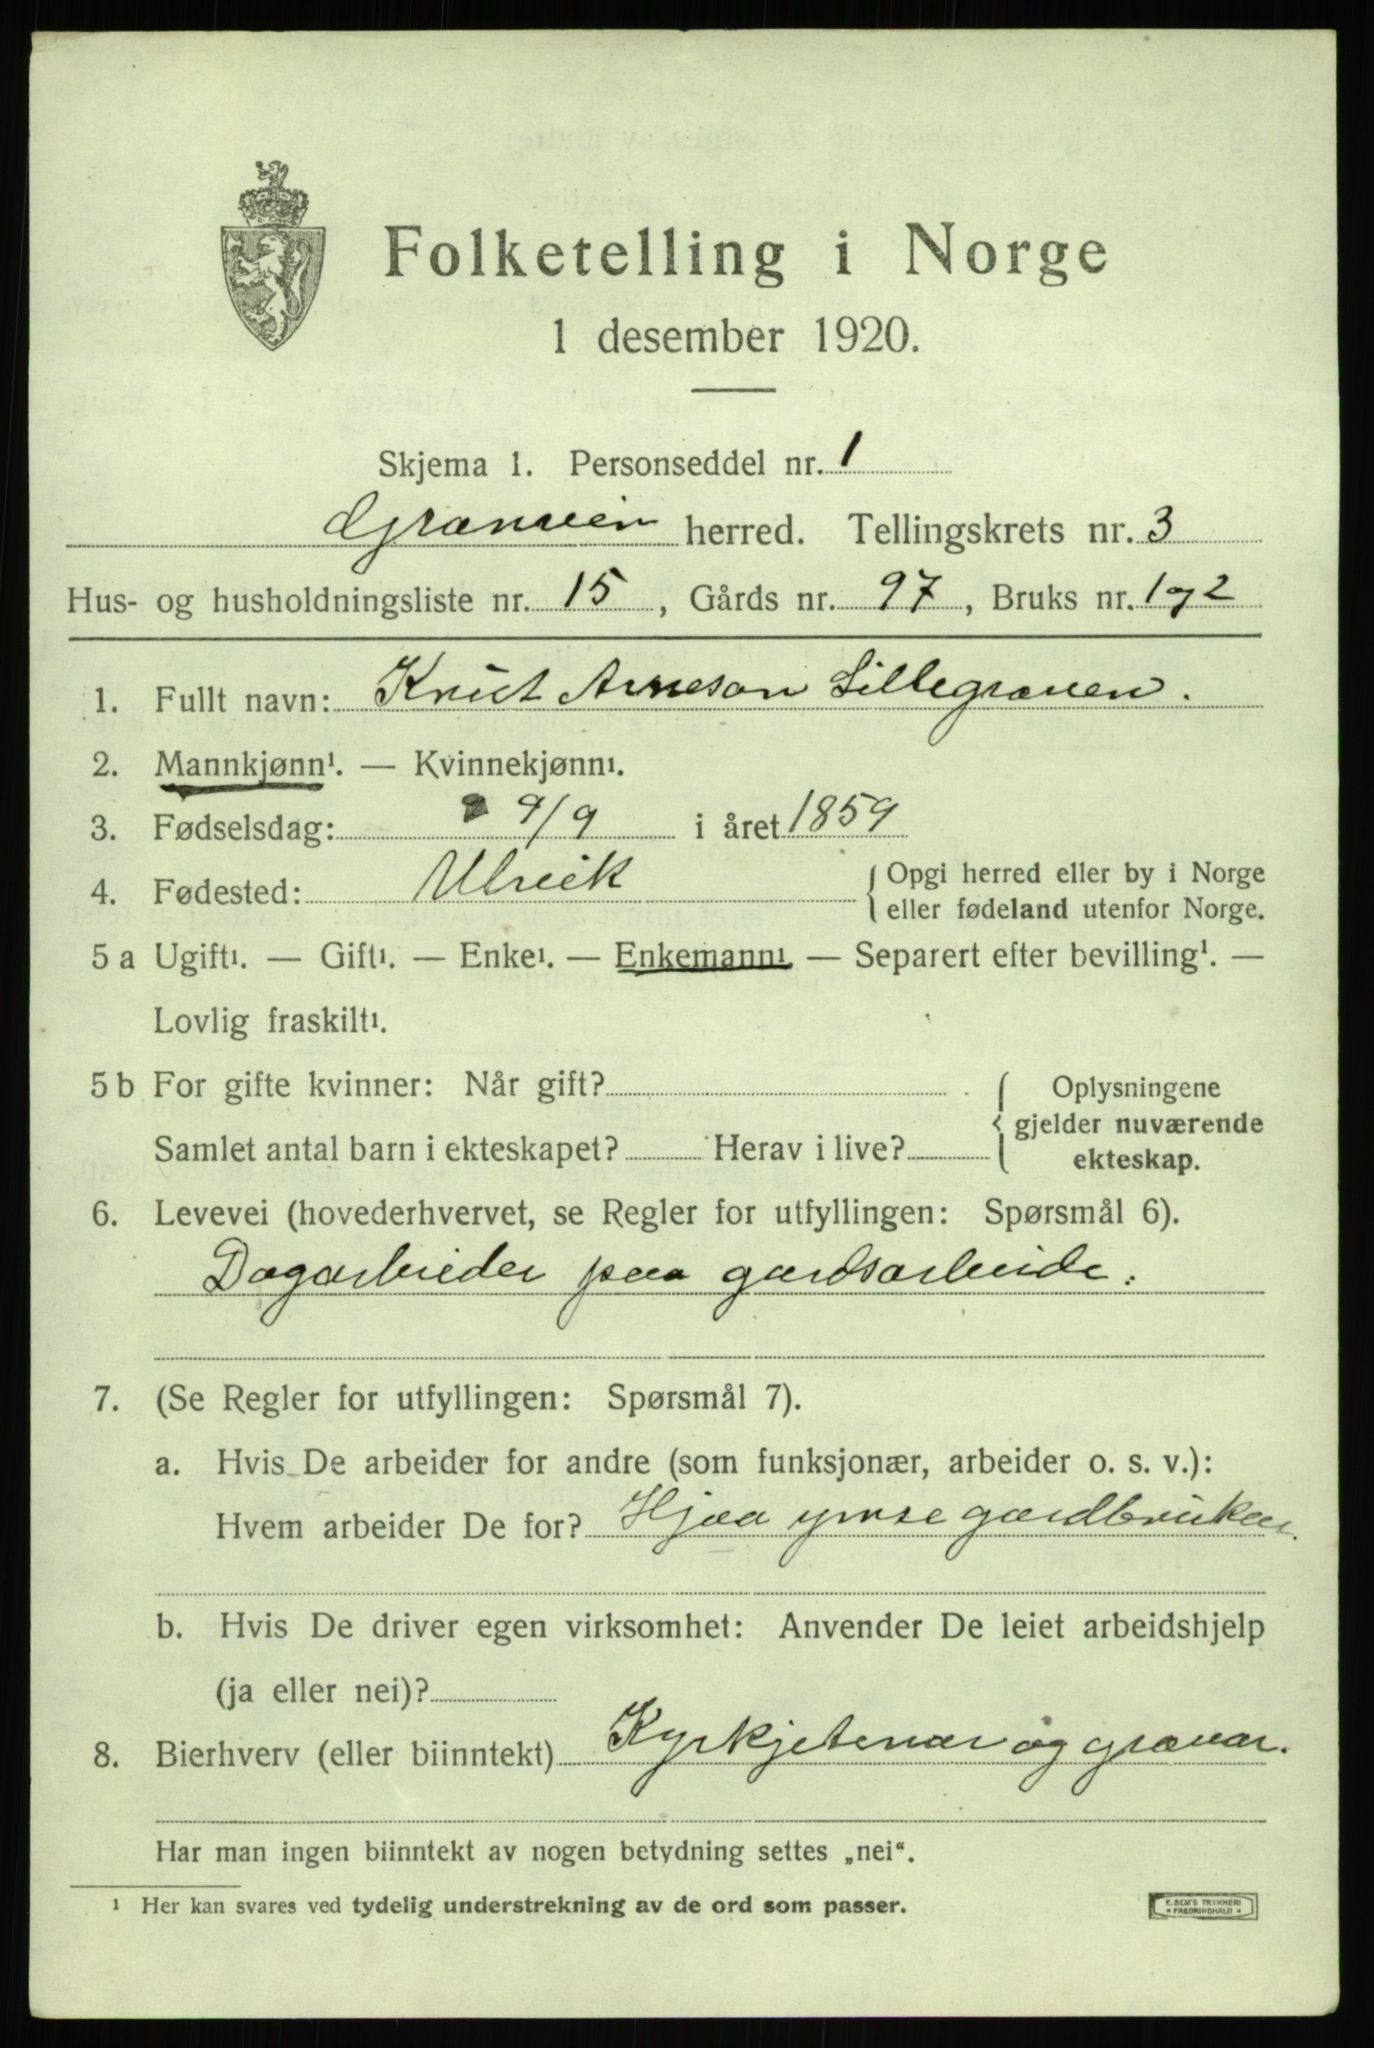 Folketelling i Norge
1 desember 1920.
Skjema 1. Personseddel nr. 1
Granvin herred. Tellingskrets nr. 3
Hus- og husholdningsliste nr. 15, Gårds nr. 97, Bruks nr. 1 og 2
1. Fullt navn: Knut Arneson Lillegraven.
2. Mannkjønn¹. — Kvinnekjønn¹.
3. Fødselsdag: 9/9 i året 1859
4. Fødested: Ulvik { Opgi herred eller by i Norge
eller fødeland utenfor Norge.
5 a Ugift¹. — Gift¹. — Enke¹. — Enkemann¹ — Separert efter bevilling¹. —
Lovlig fraskilt¹.
5 b For gifte kvinner: Når gift? { Oplysningene
gjelder nuværende
Samlet antal barn i ekteskapet? Herav i live? ekteskap.
6. Levevei (hovederhvervet, se Regler for utfyllingen: Spørsmål 6).
Dagarbeider paa gardsarbeide.
7. (Se Regler for utfyllingen: Spørsmål 7).
a. Hvis De arbeider for andre (som funksjonær, arbeider o. s. v.):
Hvem arbeider De for? Hjaa ymse gardbrukar.
b. Hvis De driver egen virksomhet: Anvender De leiet arbeidshjelp
(ja eller nei)?
8. Bierhverv (eller biinntekt) Kyrkjetenar og gravar.
Har man ingen biinntekt av nogen betydning settes „nei“.
¹ Her kan svares ved tydelig understrekning av de ord som passer.
E. SEM'S TRYKKERI
* FREDRIKSHALD *